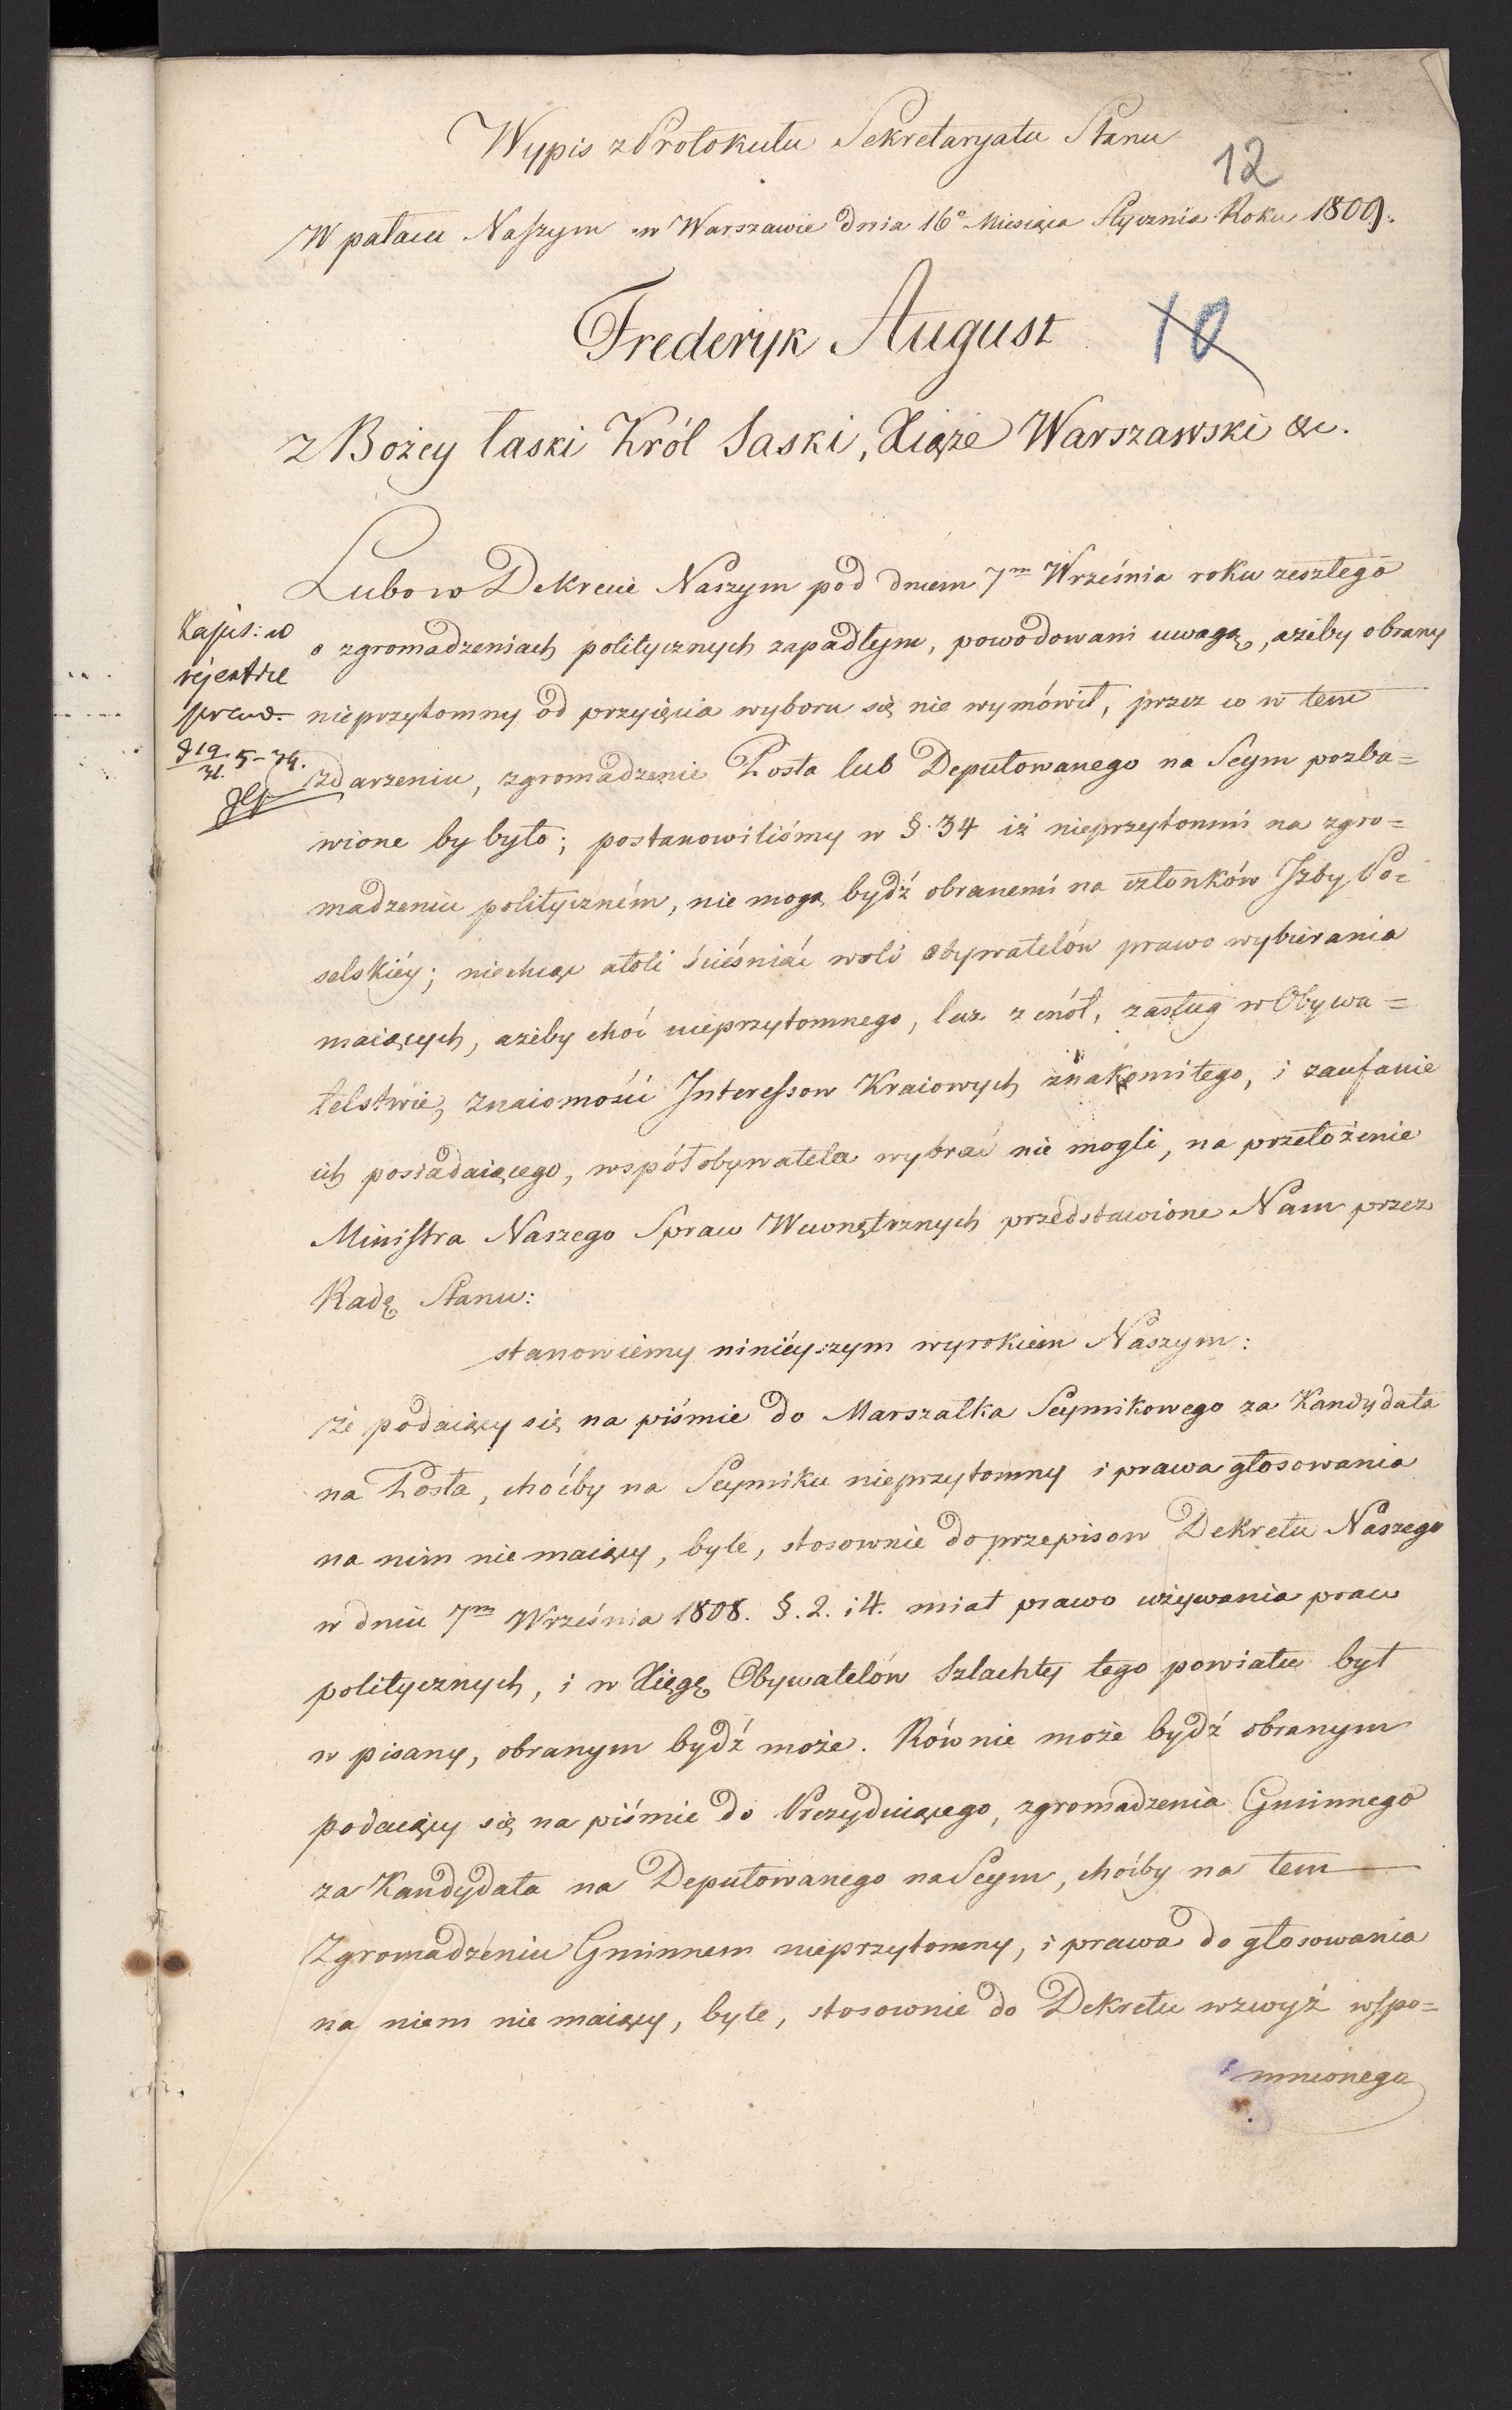 Wypis z Protokułu Sekretaryatu Stanu
12
W pałacu Naszym w Warszawie dnia 16° Miesiąca Stycznia Roku 1809.
Frederyk August
10
z Bożey łaski Król Saski, Xiąże Warszawski &c.
Lubo w Dekrecie Naszym pod dniem 7m Września roku zeszłego
o zgromadzeniach politycznych zapadłym, powodowani uwagą, ażeby obrany
nieprzytomny od przyięcia wyboru się nie wymówił, przez co w tem
zdarzeniu, zgromadzenie Posła lub Deputowanego na Seym pozba=
wione by było; postanowiliśmy w §. 34 iż nieprzytomni na zgro=
madzeniu polityczném, nie mogą bydź obranemi na członków Izby Po=
selskiéy; niechcąc atoli ścieśniać woli obywatelów prawo wybierania
maiących, ażeby choć nieprzytomnego, lecz z cnót, zasług w Obywa=
telstwie, znaiomości Interessow Kraiowych znakomitego, i zaufanie
ich posiadaiącego, współobywatela wybrać nie mogli, na przełożenie
Ministra Naszego Spraw Wewnętrznych przedstawione Nam przez
Radę Stanu:
stanowiemy ninieyszym wyrokiem Naszym:
że podaiący się na piśmie do Marszałka Seymikowego za Kandydata
na Posła, choćby na Seymiku nieprzytomny i prawa głosowania
na nim nie maiący, byle, stosownie do przepisow Dekretu Naszego
w dniu 7m Września 1808. §. 2. i 4. miał prawo używania praw
politycznych, i w Xięgę Obywatelów Szlachty tego powiatu był
w pisany, obranym bydź może. Równie może bydź obranym
podaiący się na piśmie do Prezyduiącego, zgromadzenia Gminnego
za Kandydata na Deputowanego na Seym, choćby na tem
Zgromadzeniu Gminnem nieprzytomny, i prawa do głosowania
na niem nie maiący, byle, stosownie do Dekretu wzwyż wspo=
mnionego
Zapis: w
rejestrze